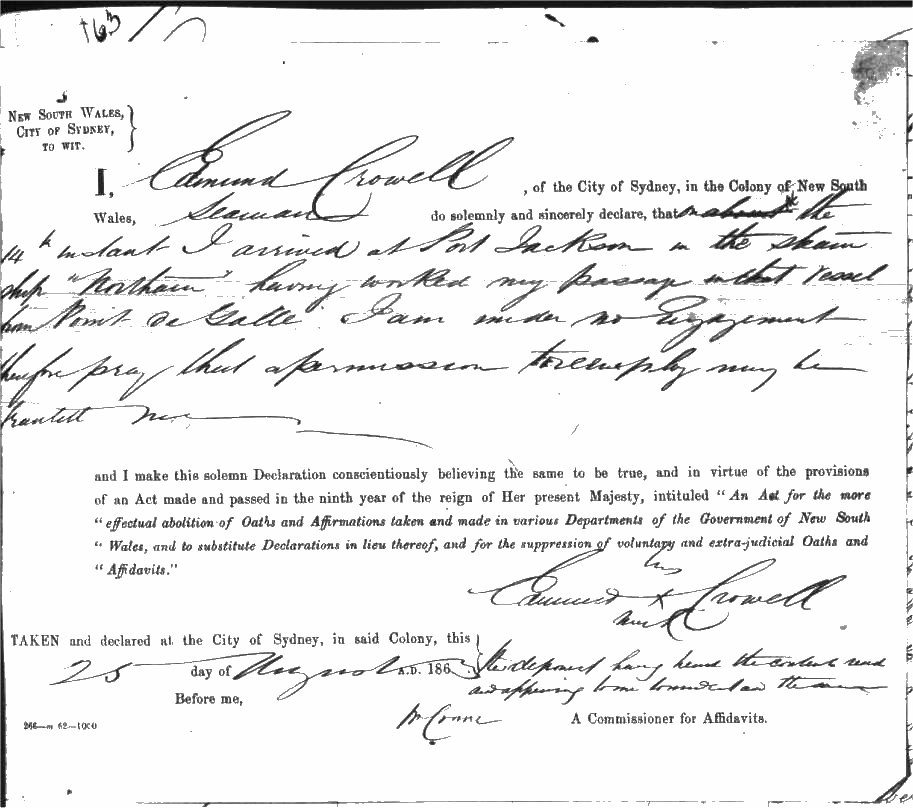 163
NEW SOUTH WALES,
CITY OF SYDNEY,
TO WIT.
I, Edmund Crowell, of the City of Sydney, in the Colony of New South
Wales, Seaman do solemnly and sincerely declare, that on about the
14th instant I arrived at Port Jackson in the steam
ship "Northam" having worked my passage in that vessel
from Point de Galle. I am under no Engagement
therefore pray that a permission to reship may be
granted me
and I make this solemn Declaration conscientiously believing the same to be true, and in virtue of the provisions
of an Act made and passed in the ninth year of the reign of Her present Majesty, intituled "An Act for the more
"effectual abolition of Oaths and Affirmations taken and made in various Departments of the Government of New South
"Wales, and to substitute Declarations in lieu thereof, and for the suppression of voluntary and extra-judicial Oaths and
"Affidavits."
his
Edmund X Crowell
mark
TAKEN and declared at the City of Sydney, in said Colony, this
25 day of August A.D. 186
Before me,
the deponent having heard the contents read
and appearing to me to understand the same
A Commissioner for Affidavits.
266—m 62—1000